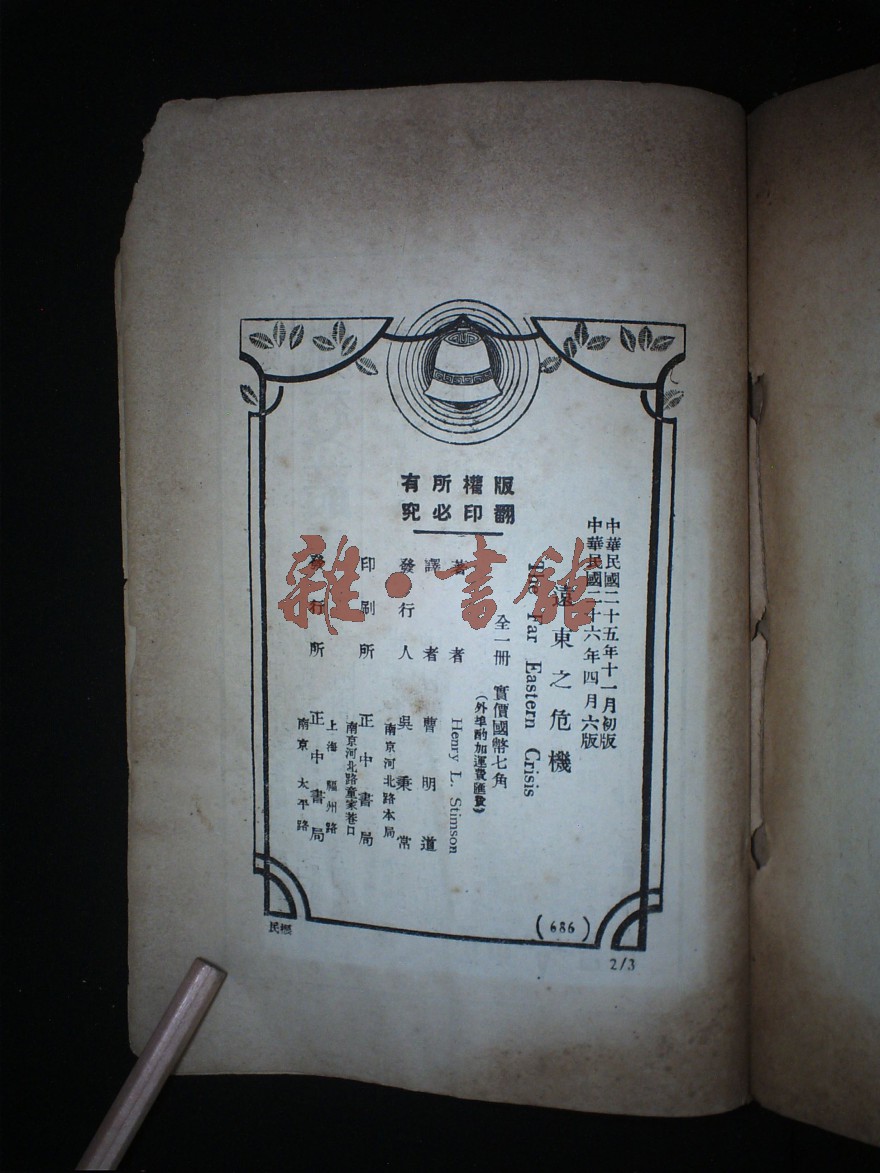 版權所有
翻印必究
中華民國二十五年十一月初版
中華民國二十六年四月六版
遠東之危機
The Far Eastern Crisis
全一冊 實價國幣七角
(外埠酌加運費匯費)
著者 Henry L. Stimson
譯者 曹明道
發行人 吳秉常
南京河北路本局
印刷所 正中書局
南京河北路童家巷口
上海福州路
發行所 正中書局
南京太平路
(686)
2/3
雜·書館